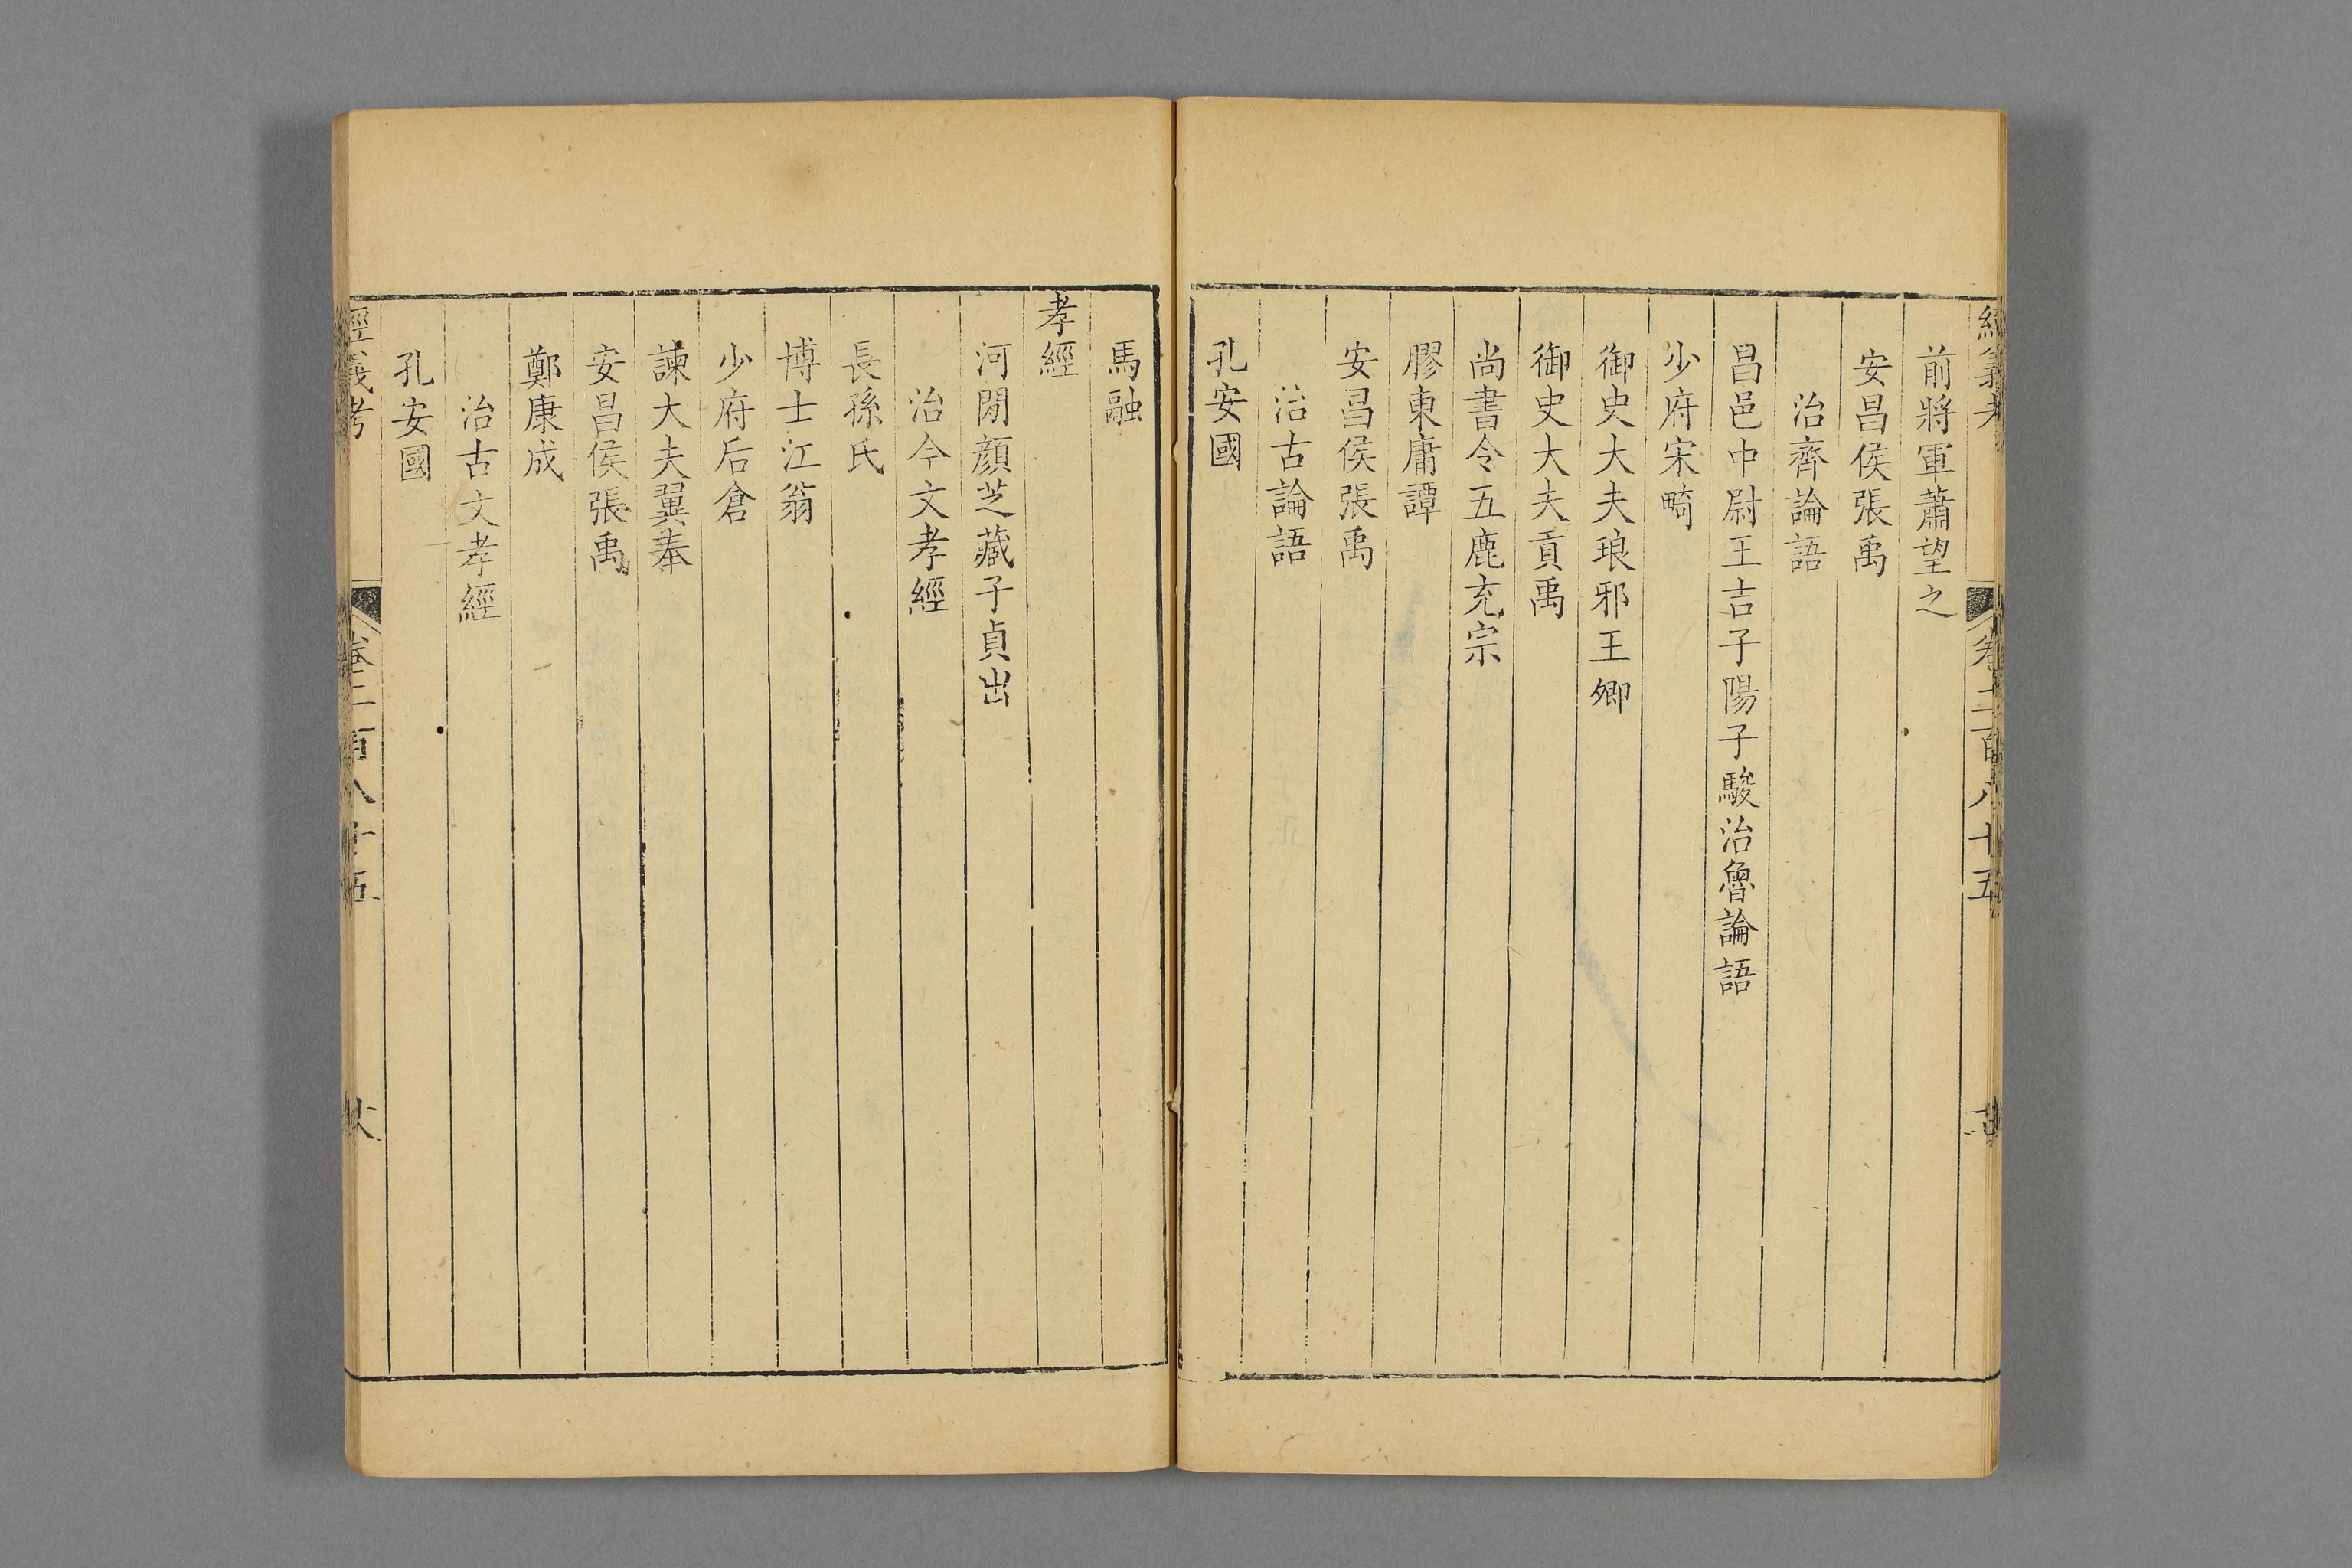 經義考 卷二百八十五
前將軍蕭望之
安昌侯張禹
治齊論語
昌邑中尉王吉子陽子駿治魯論語
少府宋畸
御史大夫琅邪王卿
御史大夫貢禹
尚書令五鹿充宗
膠東庸譚
安昌侯張禹
治古論語
孔安國
馬融
孝經
河間顏芝藏子貞出
治今文孝經
長孫氏
博士江翁
少府后倉
諫大夫翼奉
安昌侯張禹
鄭康成
治古文孝經
孔安國
經義考 卷二百八十五